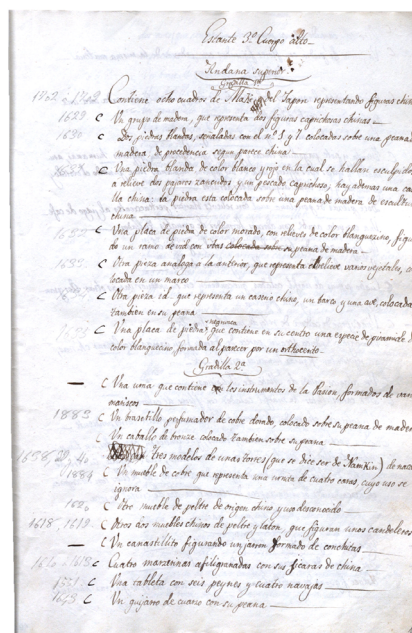 Estante 3º Cuerpo alto
Andana superior
Gradilla 1ª
Contiene octo cuadros de del Japon representando figuras chin
1629 C Un grupo de madera, que representa dos figuras caprichosas chinas
1630 C Dos piedras blandas, señaladas con el nº 3 y 7 colocadas sobre una peana
madera de procedencia segun parece china
C Una piedra blanda de color blanco y rojo en la cual se hallan esculpidos
a relieve dos pajaros zancudos, y un pescado caprichoso, hay ademas una ca
lla china: la piedra esta colocada sobre una peana de madera de escultur
china
C Una placa de piedra de color morado, con relieves de color blanquecino, figu
do un ramo de vid con ubas colocada sobre su peana de madera
C Otra pieza analoga a la anterior, que representa relieve varios vegetales, co
locada en un marco
C Otra pieza id. que representa un caserio chino, un barco, y una ave, colocada
tambien en su peana
C Una placa de piedra negruzca que contiene en su centro una especie de piramide d
color blanquecino formada al parecer por un orthocerite
Gradilla 2ª
— C Una urna que contiene los instrumentos de la Pasion, formados de
mariscos
1883 C Un braserillo perfumador de cobre dorado, colocado sobre su peana de mader
C Un caballo de bronze colocado tambien sobre su peana
tres modelos de unas torres (que se dice ser de Nankin) de nac
1884 C Un mueble de cobre que representa una renta de cuatro caras, cuyo uso se
ignora
C Otro mueble de peltre de origen chino y uso desconocido
1618, 1619 C Otros dos muebles chinos de peltre y laton, que figuran unos candeleros
— C Un canastillito figurando un jarron formado de conchitas
C Cuatro mazerinas afiligranadas con sus jicaras de china
1551 C Una tableta con seis peynes y cuatro navajas
1643 C Un guijarro de cuarzo con su peana